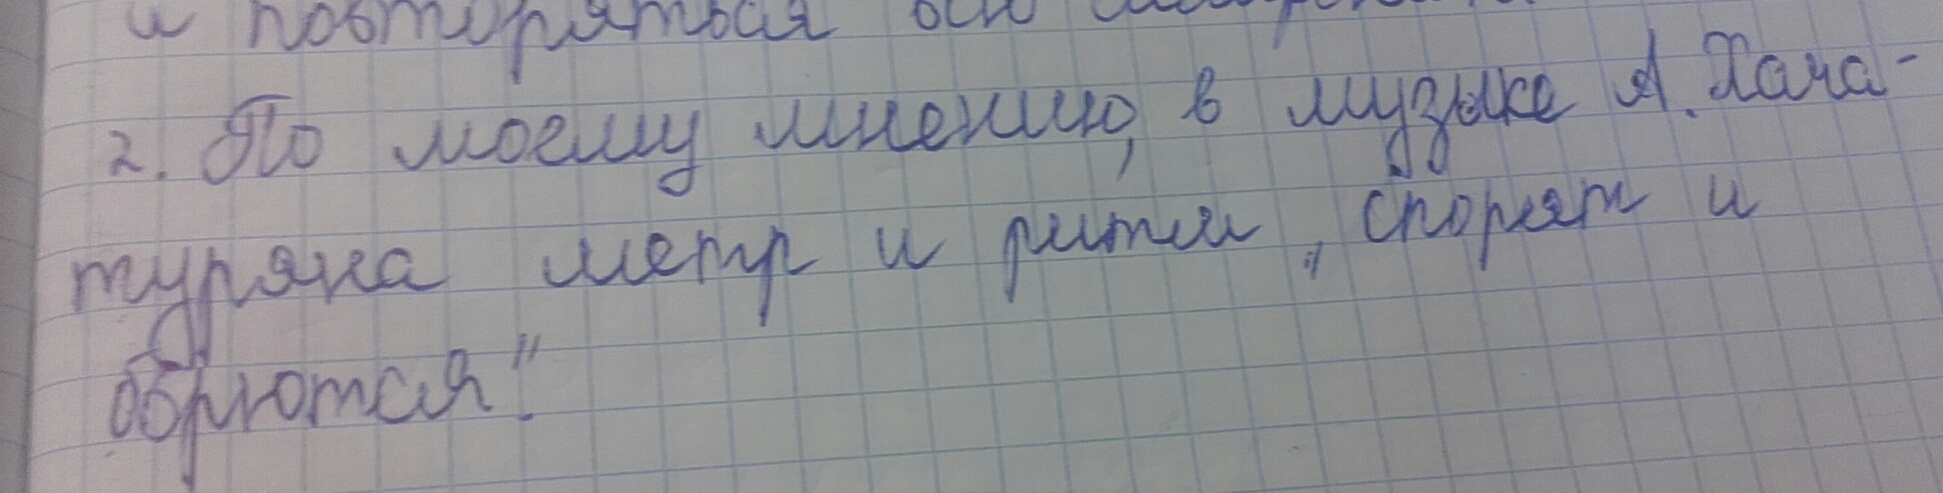 и повторяться
2. По моему мнению, в музыке А. Хача-
туряна метр и ритм „спорят и
борются".